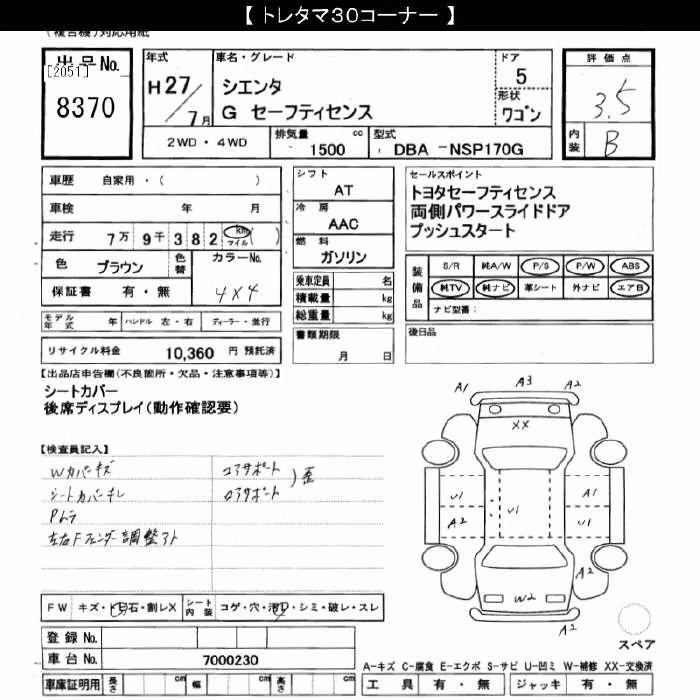 【 トレタマ30コーナー 】
(複合機)対応用紙
出品No.
[2051]
8370
年式
H27/7月
車名・グレード
シエンタ
G セーフティセンス
ドア
5
形状
ワゴン
評価点
3.5
内装
B
2WD・4WD
排気量
1500 cc
型式
DBA -NSP170G
車歴 自家用・( )
車検 年 月
走行 7万 9千 3 8 2 km マイル ( )
色 ブラウン
色替
カラーNo.
4X4
保証書 有・無
モデル年式 年 ハンドル 左・右 ディーラー・並行
リサイクル料金 10,360 円 預託済
シフト
AT
冷房
AAC
燃料
ガソリン
乗車定員 名
積載量 kg
総重量 kg
書類期限
月 日
セールスポイント
トヨタセーフティセンス
両側パワースライドドア
プッシュスタート
装備品
S/R 純A/W P/S P/W ABS
純TV 純ナビ 革シート 外ナビ エアB
ナビ型番:
後日品
【出品店申告欄(不良箇所・欠品・注意事項等)】
シートカバー
後席ディスプレイ(動作確認要)
【検査員記入】
Wカバーキズ
シートカバーキレ
Pムラ
左右Fフェンダー調整アト
コアサポート
ロアサポート
)歪
A1 A3 A2
XX
U1 A2
U1
A1 U1
A2
W2
A2
スペア
FW キズ・ヒ石・割レX
シート内装 コゲ・穴・汚レ・シミ・破レ・スレ
登録No.
車台No. 7000230
車庫証明用 長さ cm 幅 cm 高さ cm
A-キズ C-腐食 E-エクボ S-サビ U-凹ミ W-補修 XX-交換済
工具 有・無 ジャッキ 有・無